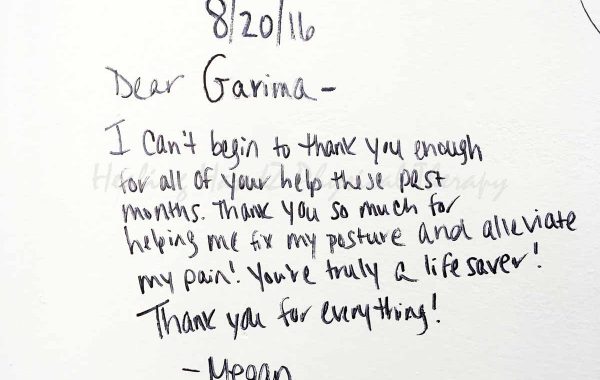 8/20/16
Dear Garima -
I can't begin to thank you enough
for all of your help these past
months. Thank you so much for
helping me fix my posture and alleviate
my pain! You're truly a life saver!
Thank you for everything!
- Megan
Healing Handz Physical Therapy